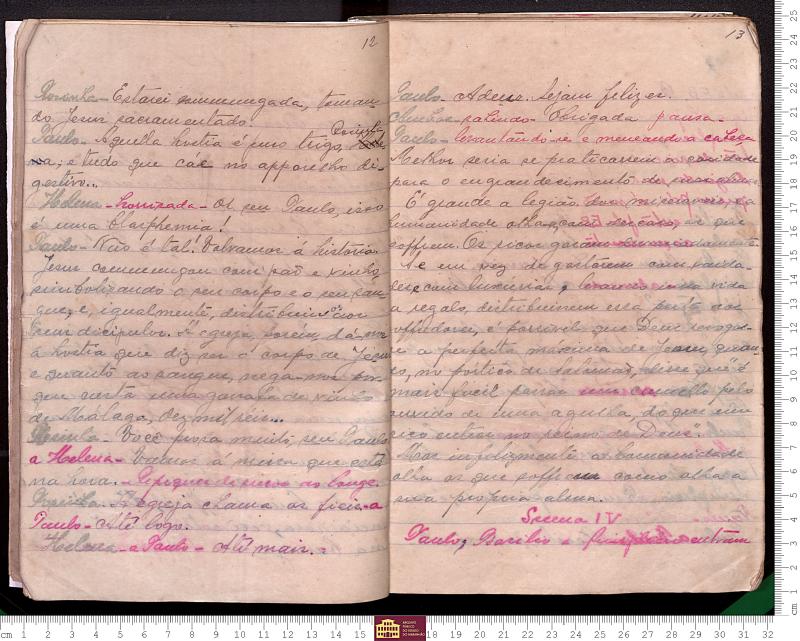 12
Rosinha - Estarei commungada, toman-
do Jesus sacramentado!
Paulo - Aquella hostia é puro trigo, Rosinha
; é tudo que cáe no apparelho di-
gestivo...
Helena - horrorizada - Oh seu Paulo, isso
é uma blasphemia!
Paulo - Não é tal! Volvamos á historia.
Jesus commungou com pão e vinho,
symbolizando o seu corpo e o seu san-
gue, e, igualmente, distribuiu aos
seus discipulos. A egreja, porém, dá-nos
a hostia que diz ser o corpo de Jesus
e quanto ao sangue, nega-nos por-
que custa uma garrafa de vinho
de Málaga, dez mil réis...
Rosinha - Você prosa muito, seu Paulo
a Helena - Vamos á missa que está
na hora. - Repiques de sinos ao longe.
Rosinha - A egreja chama os fieis - a
Paulo - até logo.
Helena - a Paulo - Até mais.
13
Paulo - Adeus. Sejam felizes.
saindo - Obrigada pausa -
Paulo - levantando-se e meneando a cabeça
Melhor seria se praticassem a caridade
para o engrandecimento de
É grande a legião dos miseraveis, e a
humanidade olha, com descaso, os que
soffrem. Os ricos gosam
Se em vez de gastarem com vaida-
des, com luxurias, levando a vida
a regalo, distribuissem essa aos
soffredores, é possivel que Deus revogas-
se a perfeita maxima de Jesus, quan-
do, no portico de Salomão, disse que "é
mais facil passar um camello pelo
de uma agulha, do que um
rico entrar no reino de Deus".
Mas infelizmente a humanidade
olha os que soffrem como olha a
sua propria alma.
Scena IV
Paulo, Basilio e entram
cm 1 2 3 4 5 6 7 8 9 10 11 12 13 14 15
ARQUIVO
PÚBLICO
DO ESTADO
DO MARANHÃO
18 19 20 21 22 23 24 25 26 27 28 29 30 31 32
cm 1 2 3 4 5 6 7 8 9 10 11 12 13 14 15 16 17 18 19 20 21 22 23 24 25